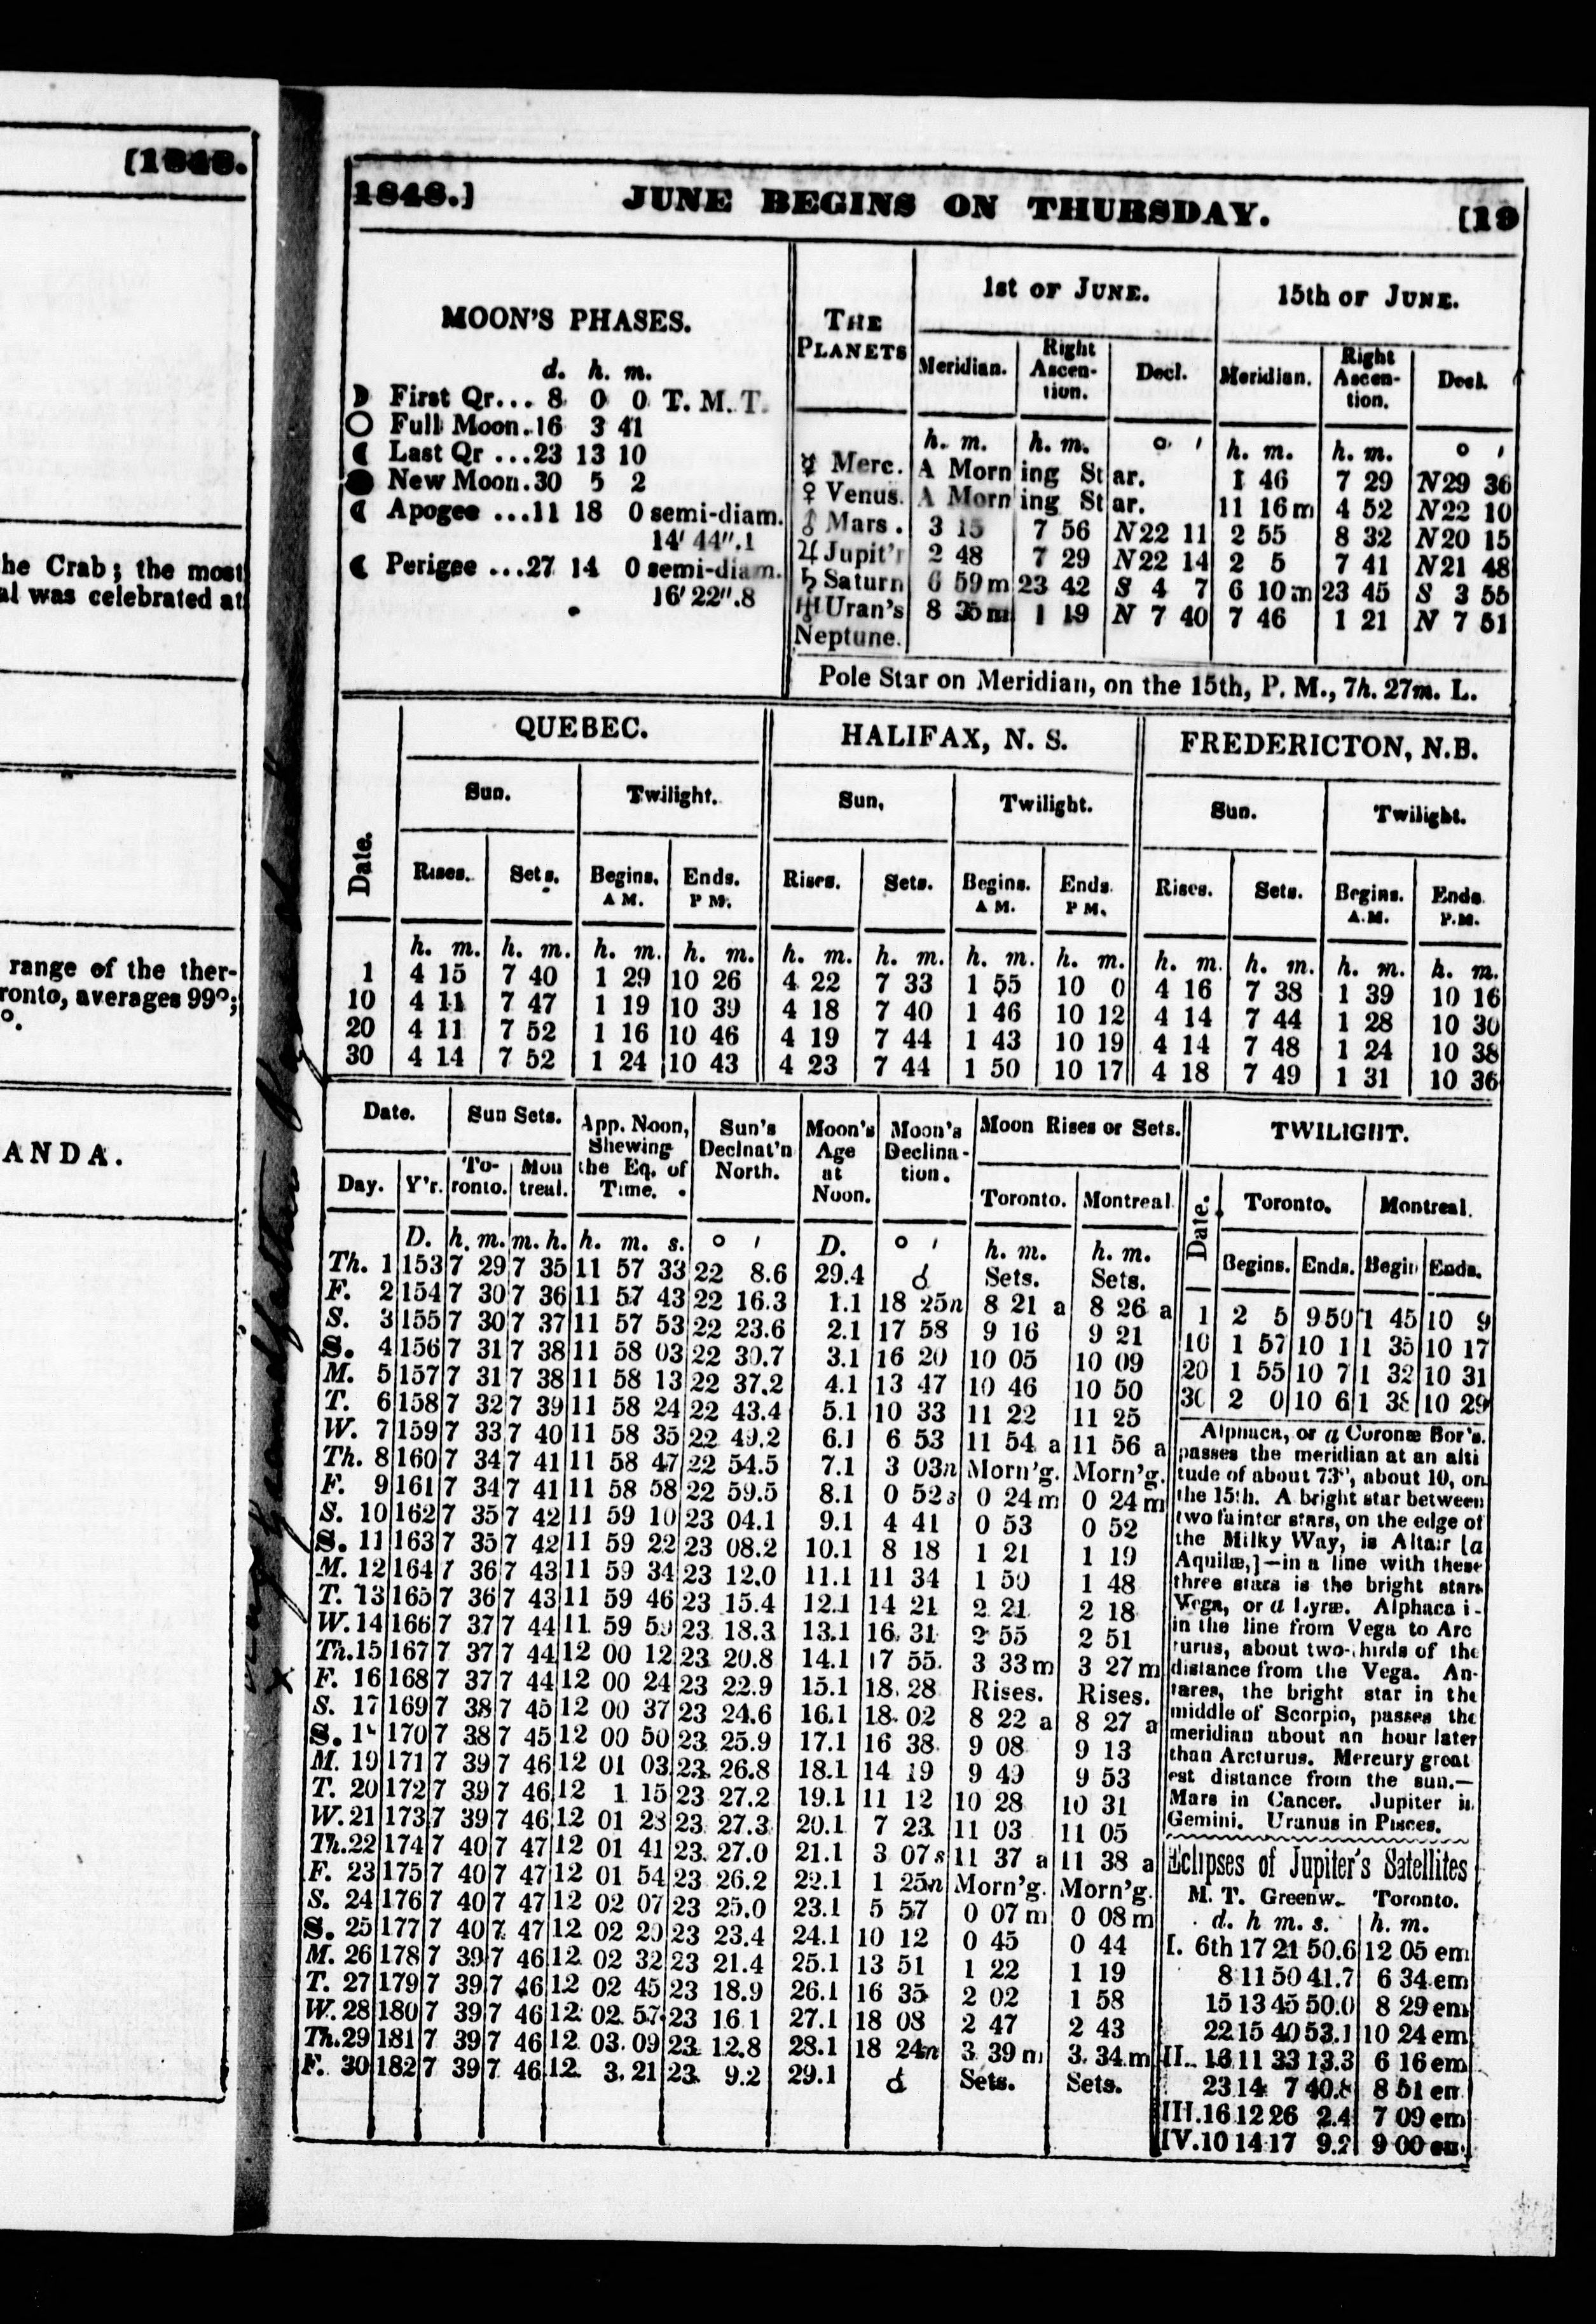 [1848.
he Crab; the most
al was celebrated at
range of the ther-
ronto, averages 99°;
°.
ANDA.
1848.] JUNE BEGINS ON THURSDAY. [19
MOON'S PHASES.
d. h. m.
☽ First Qr... 8 0 0 T. M. T.
○ Full Moon..16 3 41
☾ Last Qr ...23 13 10
● New Moon.30 5 2
☾ Apogee ...11 18 0 semi-diam.
14' 44".1
☾ Perigee ...27 14 0 semi-diam.
16' 22".8
THE PLANETS 1st OF JUNE. 15th OF JUNE.
Meridian. Right Ascen-tion. Decl. Meridian. Right Ascen-tion. Decl.
h. m. h. m. ° ' h. m. h. m. ° '
☿ Merc. A Morn ing St ar. 1 46 7 29 N29 36
♀ Venus. A Morn ing St ar. 11 16m 4 52 N22 10
♂ Mars . 3 15 7 56 N22 11 2 55 8 32 N20 15
♃ Jupit'r 2 48 7 29 N22 14 2 5 7 41 N21 48
♄ Saturn 6 59m 23 42 S 4 7 6 10m 23 45 S 3 55
♅ Uran's 8 35m 1 19 N 7 40 7 46 1 21 N 7 51
Neptune.
Pole Star on Meridian, on the 15th, P. M., 7h. 27m. L.
QUEBEC. HALIFAX, N. S. FREDERICTON, N.B.
Date. Sun. Twilight. Sun, Twilight. Sun. Twilight.
Rises. Sets. Begins. Ends. Rises. Sets. Begins. Ends. Rises. Sets. Begins. Ends.
A M. P M. A M. P M. A.M. P.M.
h. m. h. m. h. m. h. m. h. m. h. m. h. m. h. m. h. m. h. m. h. m. h. m.
1 4 15 7 40 1 29 10 26 4 22 7 33 1 55 10 0 4 16 7 38 1 39 10 16
10 4 11 7 47 1 19 10 39 4 18 7 40 1 46 10 12 4 14 7 44 1 28 10 30
20 4 11 7 52 1 16 10 46 4 19 7 44 1 43 10 19 4 14 7 48 1 24 10 38
30 4 14 7 52 1 24 10 43 4 23 7 44 1 50 10 17 4 18 7 49 1 31 10 36
Date. Sun Sets. App. Noon, Shewing the Eq. of Time. Sun's Declnat'n North. Moon's Age at Noon. Moon's Declina-tion. Moon Rises or Sets.
Day. Y'r. To-ronto. Mon treal. Toronto. Montreal
D. h. m. m. h. h. m. s. ° ' D. ° ' h. m. h. m.
Th. 1 153 7 29 7 35 11 57 33 22 8.6 29.4 ☌ Sets. Sets.
F. 2 154 7 30 7 36 11 57 43 22 16.3 1.1 18 25n 8 21 a 8 26 a
S. 3 155 7 30 7 37 11 57 53 22 23.6 2.1 17 58 9 16 9 21
S. 4 156 7 31 7 38 11 58 03 22 30.7 3.1 16 20 10 05 10 09
M. 5 157 7 31 7 38 11 58 13 22 37.2 4.1 13 47 10 46 10 50
T. 6 158 7 32 7 39 11 58 24 22 43.4 5.1 10 33 11 22 11 25
W. 7 159 7 33 7 40 11 58 35 22 49.2 6.1 6 53 11 54 a 11 56 a
Th. 8 160 7 34 7 41 11 58 47 22 54.5 7.1 3 03n Morn'g. Morn'g.
F. 9 161 7 34 7 41 11 58 58 22 59.5 8.1 0 52s 0 24m 0 24m
S. 10 162 7 35 7 42 11 59 10 23 04.1 9.1 4 41 0 53 0 52
S. 11 163 7 35 7 42 11 59 22 23 08.2 10.1 8 18 1 21 1 19
M. 12 164 7 36 7 43 11 59 34 23 12.0 11.1 11 34 1 50 1 48
T. 13 165 7 36 7 43 11 59 46 23 15.4 12.1 14 21 2 21 2 18
W. 14 166 7 37 7 44 11 59 59 23 18.3 13.1 16 31 2 55 2 51
Th. 15 167 7 37 7 44 12 00 12 23 20.8 14.1 17 55 3 33m 3 27m
F. 16 168 7 37 7 44 12 00 24 23 22.9 15.1 18 28 Rises. Rises.
S. 17 169 7 38 7 45 12 00 37 23 24.6 16.1 18 02 8 22 a 8 27 a
S. 170 7 38 7 45 12 00 50 23 25.9 17.1 16 38 9 08 9 13
M. 19 171 7 39 7 46 12 01 03 23 26.8 18.1 14 19 9 49 9 53
T. 20 172 7 39 7 46 12 1 15 23 27.2 19.1 11 12 10 28 10 31
W. 21 173 7 39 7 46 12 01 28 23 27.3 20.1 7 23 11 03 11 05
Th. 22 174 7 40 7 47 12 01 41 23 27.0 21.1 3 07s 11 37 a 11 38 a
F. 23 175 7 40 7 47 12 01 54 23 26.2 22.1 1 25n Morn'g. Morn'g.
S. 24 176 7 40 7 47 12 02 07 23 25.0 23.1 5 57 0 07m 0 08m
S. 25 177 7 40 7 47 12 02 20 23 23.4 24.1 10 12 0 45 0 44
M. 26 178 7 39 7 46 12 02 32 23 21.4 25.1 13 51 1 22 1 19
T. 27 179 7 39 7 46 12 02 45 23 18.9 26.1 16 35 2 02 1 58
W. 28 180 7 39 7 46 12 02 57 23 16 1 27.1 18 08 2 47 2 43
Th. 29 181 7 39 7 46 12 03 09 23 12.8 28.1 18 24n 3 39 m 3 34 m
F. 30 182 7 39 7 46 12 3 21 23 9.2 29.1 ☌ Sets. Sets.
TWILIGHT.
Date. Toronto. Montreal.
Begins. Ends. Begin Ends.
1 2 5 9 59 1 45 10 9
10 1 57 10 1 1 35 10 17
20 1 55 10 7 1 32 10 31
30 2 0 10 6 1 38 10 29
Alphaca, or a Coronæ Bor's.
passes the meridian at an alti
tude of about 73°, about 10, on
the 15th. A bright star between
two fainter stars, on the edge of
the Milky Way, is Altair [a
Aquilæ,]—in a line with these
three stars is the bright star
Vega, or a Lyræ. Alphaca i-
in the line from Vega to Arc
turus, about two-thirds of the
distance from the Vega. An-
tares, the bright star in the
middle of Scorpio, passes the
meridian about an hour later
than Arcturus. Mercury great
est distance from the sun.—
Mars in Cancer. Jupiter in
Gemini. Uranus in Pisces.
Eclipses of Jupiter's Satellites
M. T. Greenw. Toronto.
d. h m. s. h. m.
I. 6th 17 21 50.6 12 05 em
8 11 50 41.7 6 34 em
15 13 45 50.0 8 29 em
22 15 40 53.1 10 24 em
II. 16 11 33 13.3 6 16 em
23 14 7 40.8 8 51 em
III. 16 12 26 2.4 7 09 em
IV. 10 14 17 9.2 9 00 em